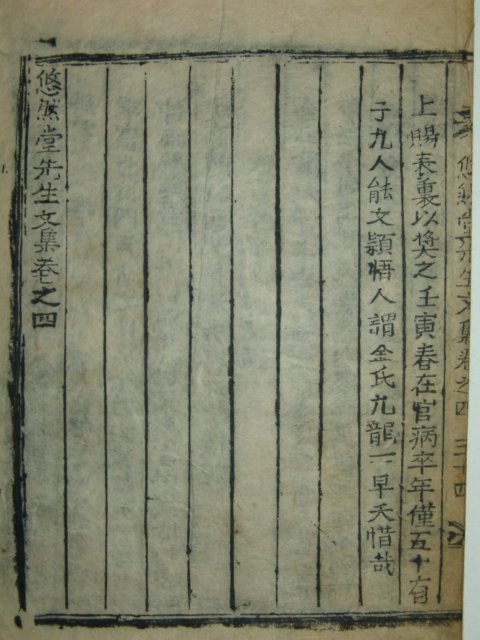 悠然堂先生文集卷之四 三十四
上賜表裏以奬之壬寅春在官病卒年僅五十有
子九人能文穎悟人謂金氏九龍一早夭惜哉
悠然堂先生文集卷之四